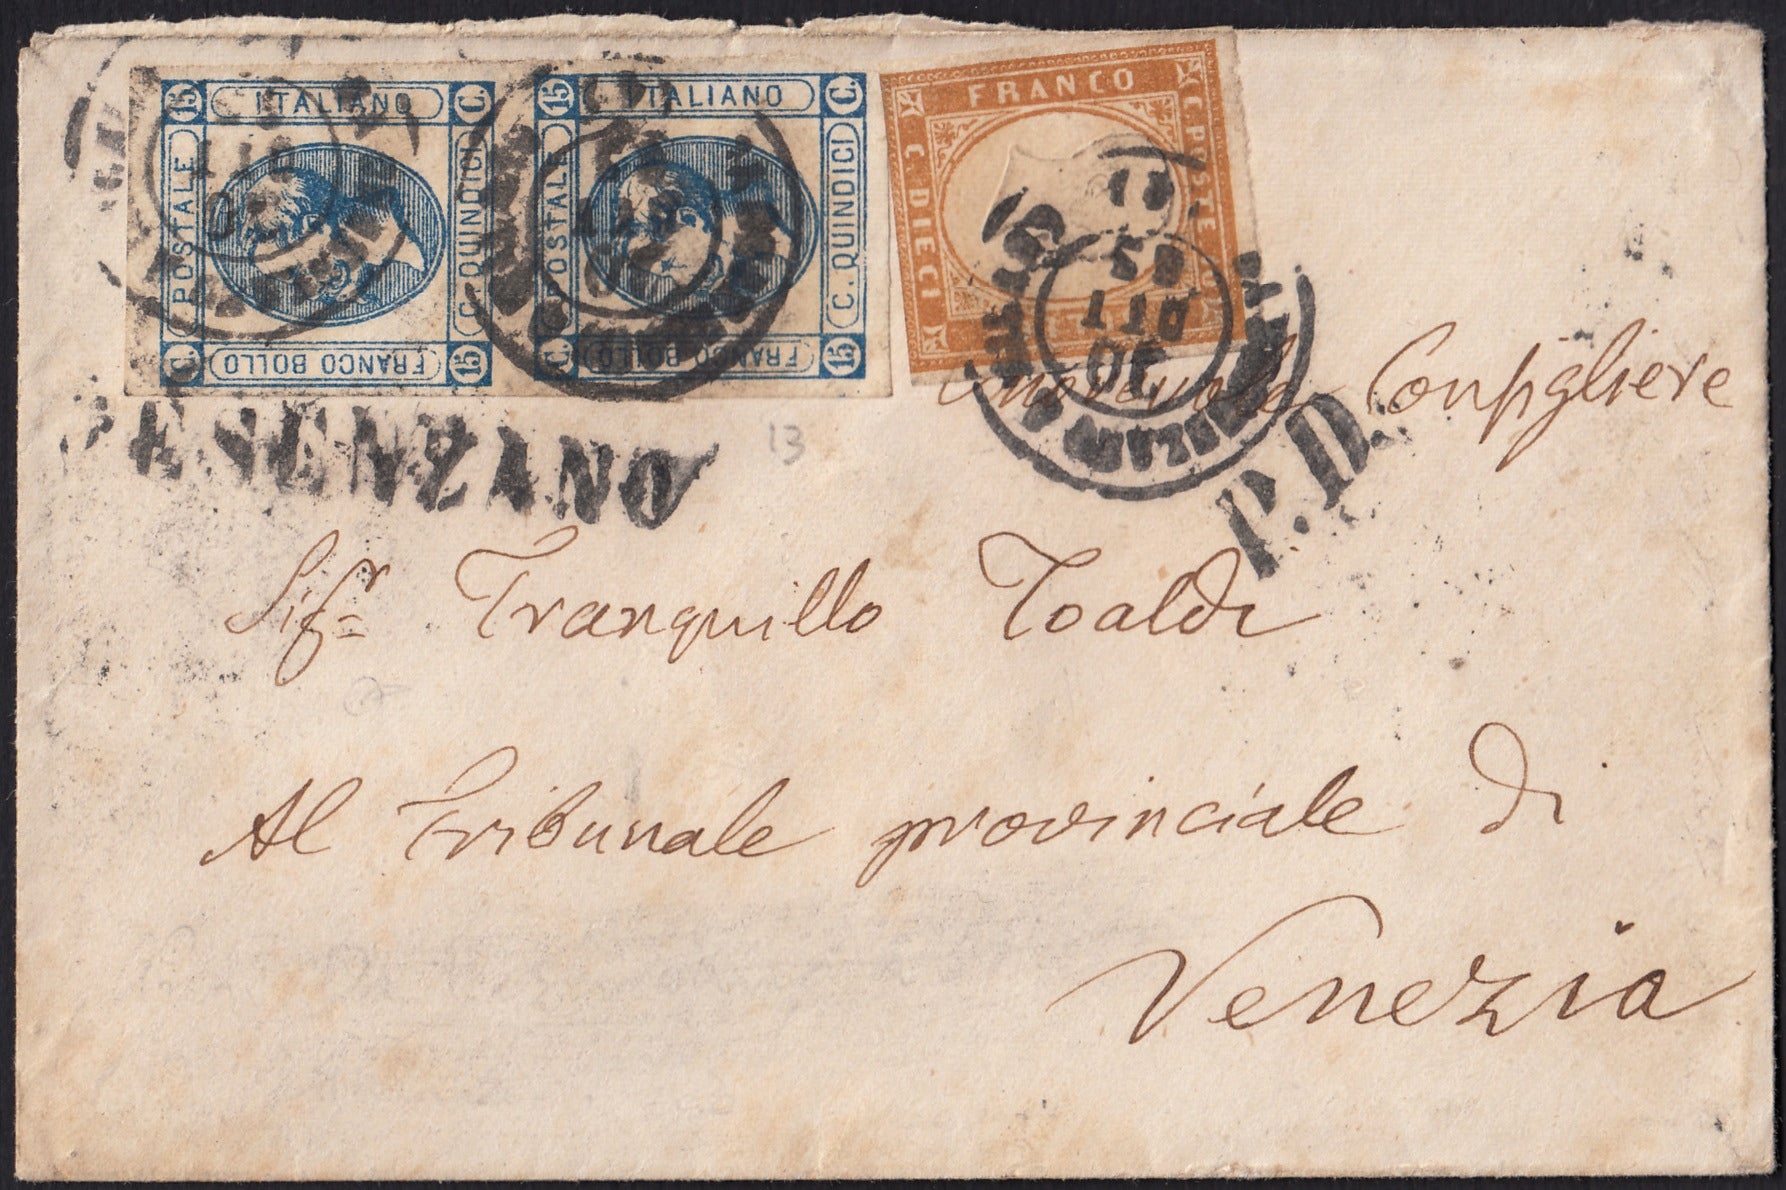 ITALIANO
15 C.
POSTALE
C. QUINDICI
FRANCO BOLLO
C. 15
ITALIANO
15 C.
POSTALE
C. QUINDICI
FRANCO BOLLO
C. 15
FRANCO
C. DIECI
C. POSTE
13
DESENZANO
P.D.
Onorevole Consigliere
Sigr Tranquillo Toaldi
Al Tribunale provinciale di
Venezia